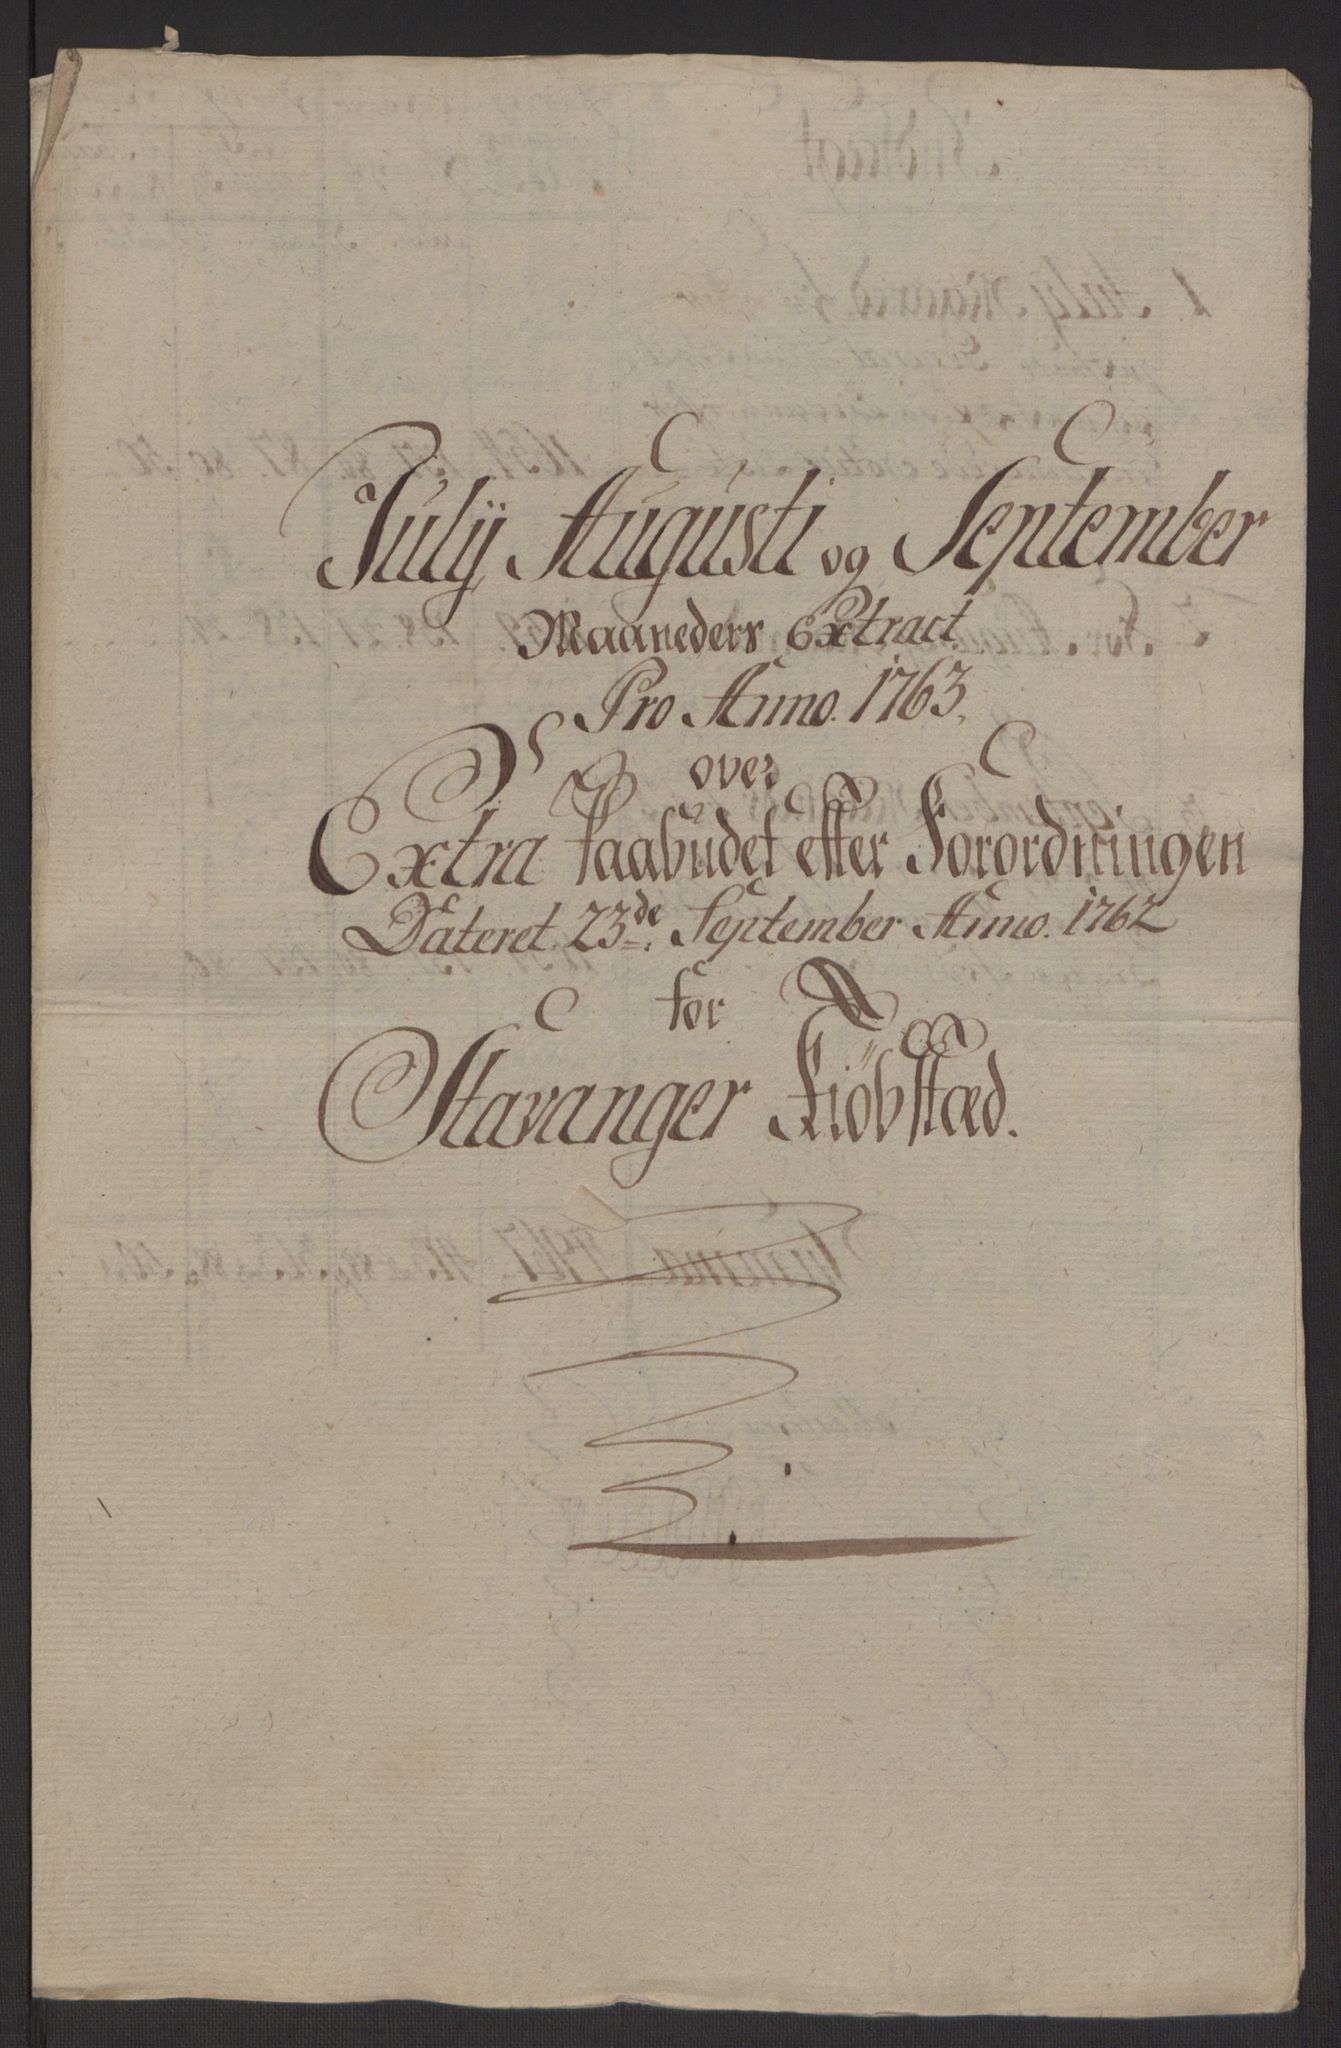 Julij, Augusti og September
Maaneders Extract
Pro Anno. 1763.
over
Extra Paabudet efter Forordningen
Dateret. 23de. September Anno. 1762
for
Stavanger Kiöbstæd.